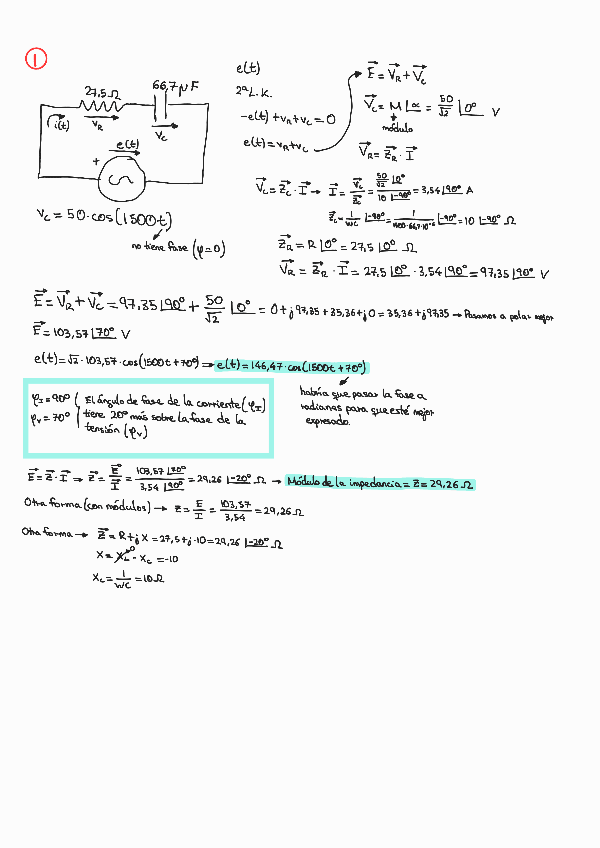 1
27,5Ω
66,7μF
i(t)
vR
vC
e(t)
+
vC = 50·cos(1500t)
no tiene fase (φ=0)
e(t)
2ª L.K.
-e(t)+vR+vC=0
e(t)=vR+vC
E = VR + VC
VC = M∠α = 50/√2 ∠0° V
módulo
VR = ZR · I
VC = ZC · I → I = VC/ZC = (50/√2 ∠0°)/(10 ∠-90°) = 3,54∠90° A
ZC = 1/WC ∠-90° = 1/(1500·66,7·10⁻⁶) ∠-90° = 10 ∠-90° Ω
ZR = R∠0° = 27,5∠0° Ω
VR = ZR · I = 27,5∠0° · 3,54∠90° = 97,35∠90° V
E = VR + VC = 97,35∠90° + 50/√2 ∠0° = 0+j97,35+35,36+j0 = 35,36+j97,35 → Pasamos a polar mejor
E = 103,57∠70° V
e(t) = √2·103,57·cos(1500t+70°) → e(t) = 146,47·cos(1500t+70°)
habría que pasar la fase a
radianes para que esté mejor
expresado.
φI = 90°
φV = 70°
El ángulo de fase de la corriente (φI)
tiene 20° más sobre la fase de la
tensión (φV)
E = Z · I → Z = E/I = (103,57∠70°)/(3,54∠90°) = 29,26∠-20° Ω → Módulo de la impedancia = Z = 29,26 Ω
Otra forma (con módulos) → Z = E/I = 103,57/3,54 = 29,26 Ω
Otra forma → Z = R+jX = 27,5+j·-10 = 29,26∠-20° Ω
X = XL⁰ - XC = -10
XC = 1/WC = 10Ω